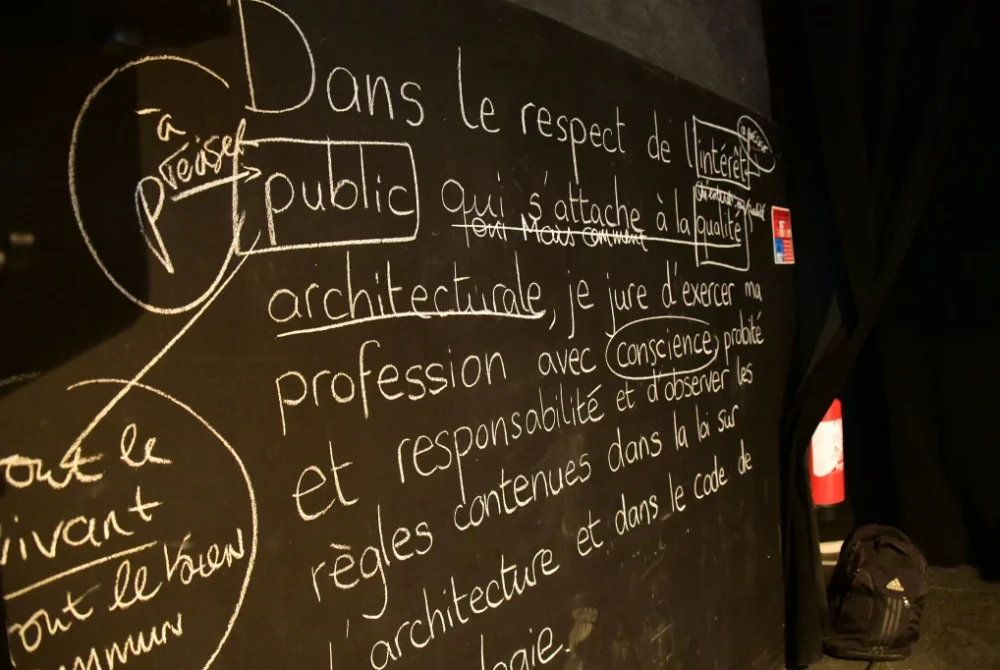 Dans le respect de l'intérêt
public qui s'attache à la qualité
oui Mais comment
architecturale, je jure d'exercer ma
profession avec conscience, probité
et responsabilité et d'observer les
règles contenues dans la loi sur
l'architecture et dans le code de
logie.
à
préciser
à préciser
out le
vivant
out le bien
mmun
adidas